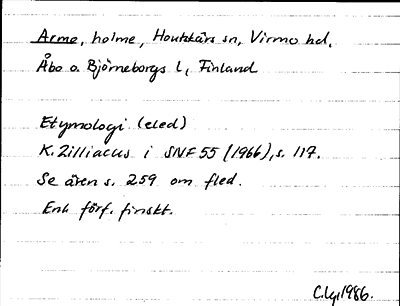 Arme, holme, Houtskärs sn, Virmo hd,
Åbo o. Björneborgs l, Finland
Etymologi (eled)
K. Zilliacus i SNF 55 (1966), s. 117.
Se även s. 259 om fled.
Enl. förf. finskt.
C.Lg. 1986.